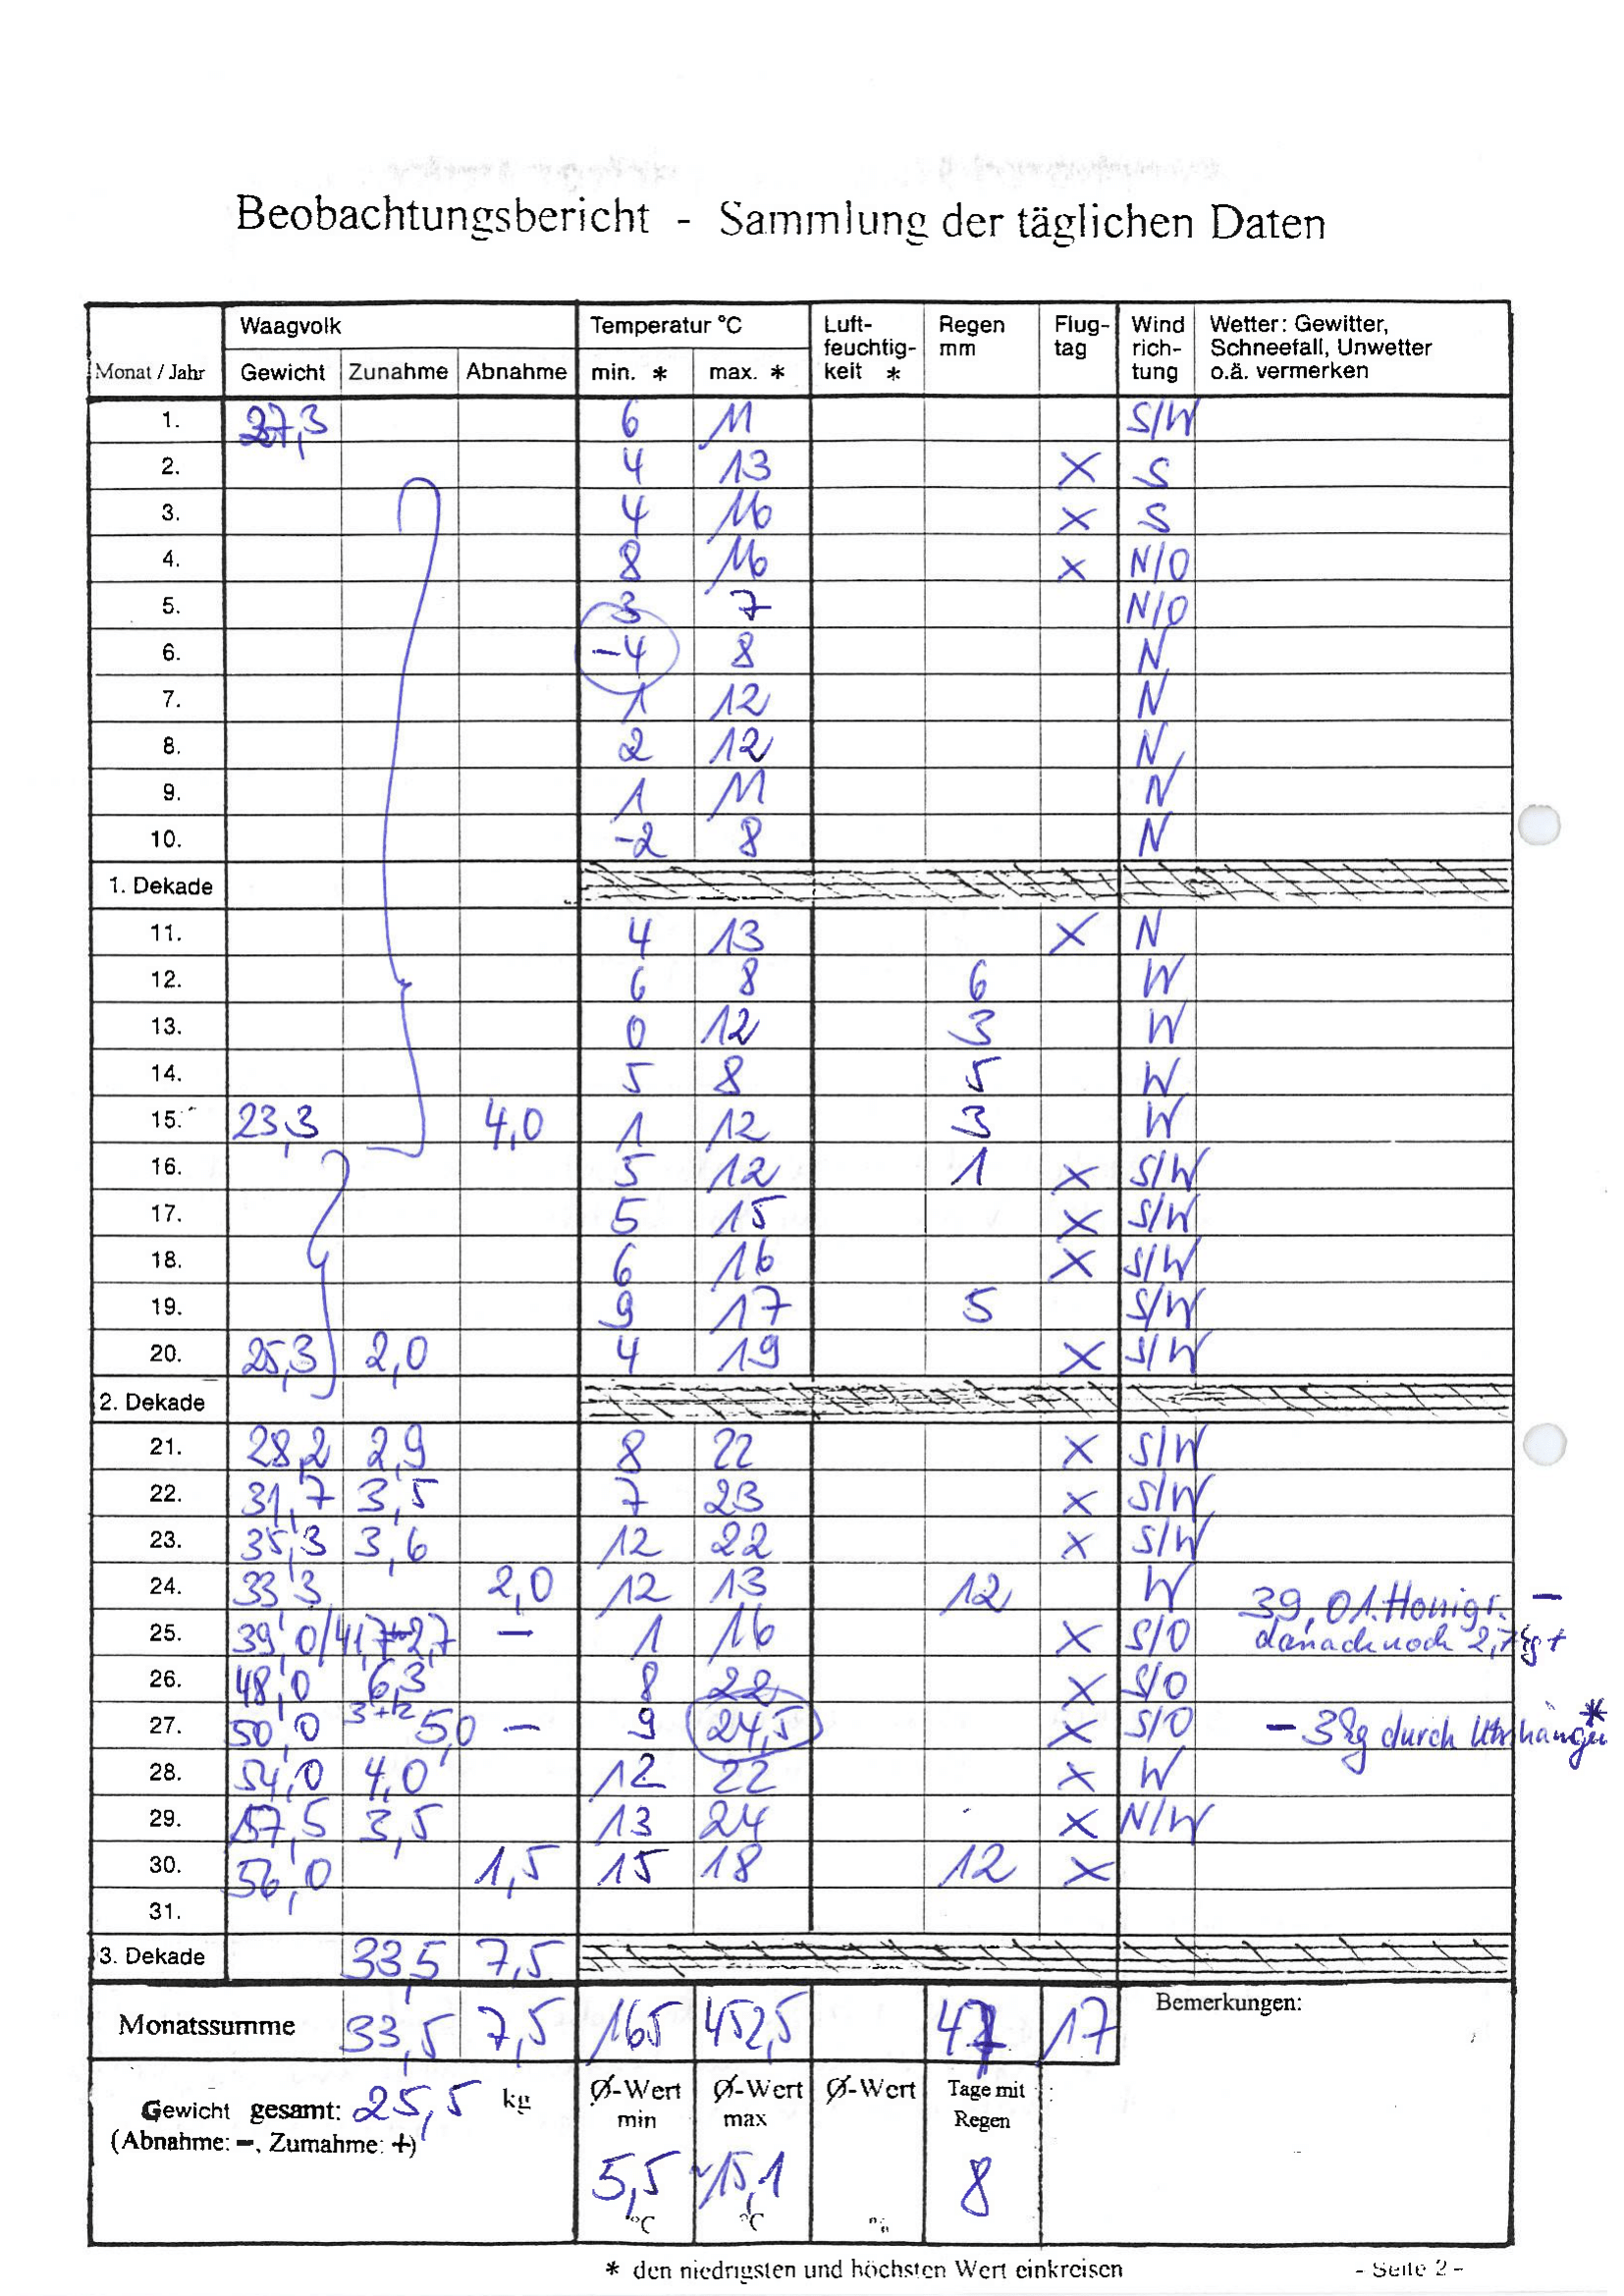 Beobachtungsbericht - Sammlung der täglichen Daten
Monat / Jahr Waagvolk Temperatur °C Luft- Regen Flug- Wind Wetter: Gewitter,
feuchtig- mm tag rich- Schneefall, Unwetter
Gewicht Zunahme Abnahme min. * max. * keit * tung o.ä. vermerken
1. 27,3 6 11 S/W
2. 4 13 X S
3. 4 16 X S
4. 8 16 X N/O
5. 3 7 N/O
6. -4 8 N
7. 1 12 N
8. 2 12 N
9. 1 11 N
10. -2 8 N
1. Dekade
11. 4 13 X N
12. 6 8 6 W
13. 0 12 3 W
14. 5 8 5 W
15. 23,3 4,0 1 12 3 W
16. 5 12 1 X S/W
17. 5 15 X S/W
18. 6 16 X S/W
19. 9 17 5 S/W
20. 25,3 2,0 4 19 X S/W
2. Dekade
21. 28,2 2,9 8 22 X S/W
22. 31,7 3,5 7 23 X S/W
23. 35,3 3,6 12 22 X S/W
24. 33,3 2,0 12 13 12 W 39,0 1. Honigr. -
25. 39,0/41,7 2,7 - 1 16 X S/O danach noch 2,7 kg +
26. 48,0 6,3 8 22 X S/O
27. 50,0 5,0 - 9 24,5 X S/O - 3 kg durch Umhängen *
28. 54,0 4,0 12 22 X W
29. 57,5 3,5 13 24 X N/W
30. 56,0 1,5 15 18 12 X
31.
3. Dekade 33,5 7,5
Monatssumme 33,5 7,5 165 452,5 47 17 Bemerkungen:
Gewicht gesamt: 25,5 kg Ø-Wert Ø-Wert Ø-Wert Tage mit
(Abnahme: -, Zumahme: +) min max Regen
5,5 ~15,1 8
°C °C %
* den niedrigsten und höchsten Wert einkreisen - Seite 2 -